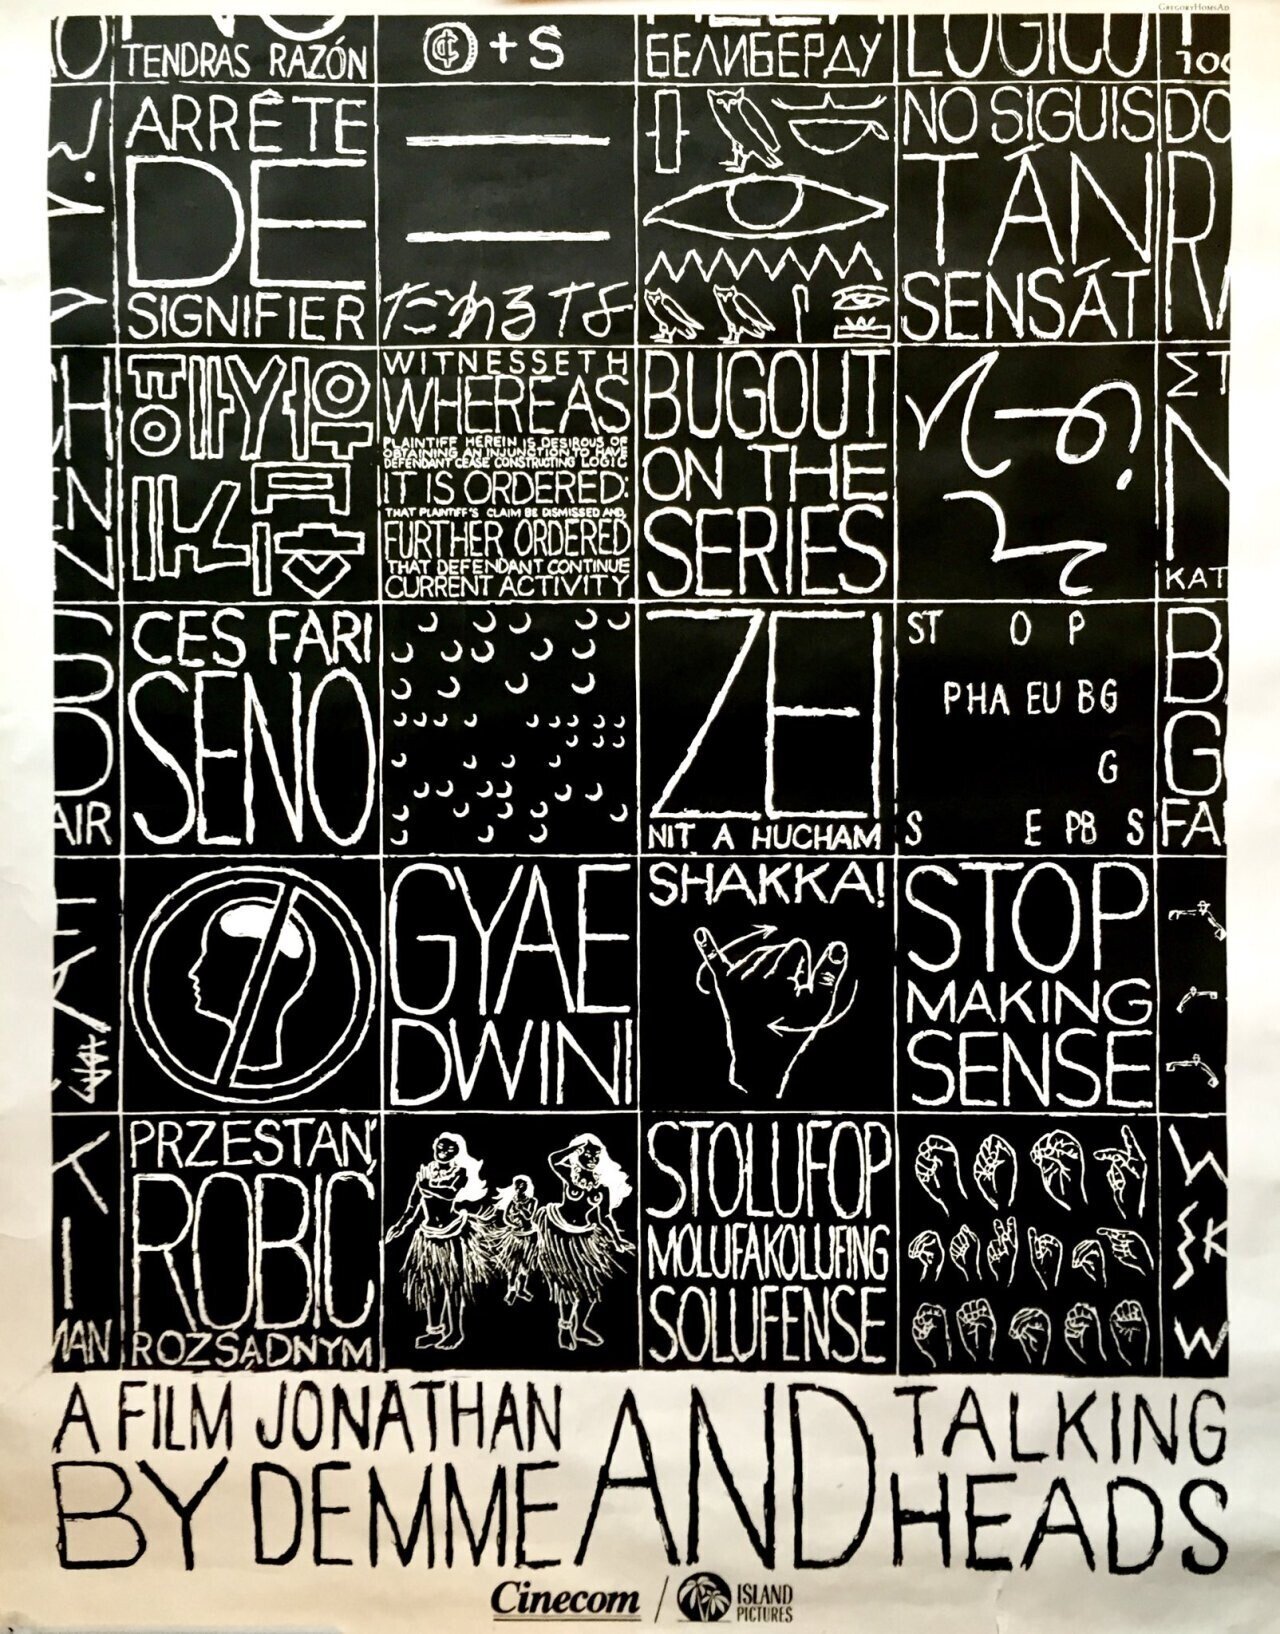 GREGORYHOMSAD
TENDRAS RAZÓN
¢ + S
БЕЛИБЕРДУ
LÓGICO
100
ARRÊTE
DE
SIGNIFIER
NO SIGUIS
TÁN
SENSÁT
DO
WITNESSETH
WHEREAS
PLAINTIFF HEREIN IS DESIROUS OF
OBTAINING AN INJUNCTION TO HAVE
DEFENDANT CEASE CONSTRUCTING LOGIC
IT IS ORDERED:
THAT PLAINTIFF'S CLAIM BE DISMISSED AND,
FURTHER ORDERED
THAT DEFENDANT CONTINUE
CURRENT ACTIVITY
BUGOUT
ON THE
SERIES
ΣΤ
KAT
CES FARI
SENO
AIR
ZEI
NIT A HUCHAM
ST O P
PHA EU BG
G
S E PB S
B
G
FA
GYAE
DWINI
SHAKKA!
STOP
MAKING
SENSE
PRZESTAŃ
ROBIĆ
ROZSĄDNYM
MAN
STOLUFOP
MOLUFAKOLUFING
SOLUFENSE
A FILM JONATHAN
BY DEMME AND TALKING
HEADS
Cinecom / ISLAND
PICTURES